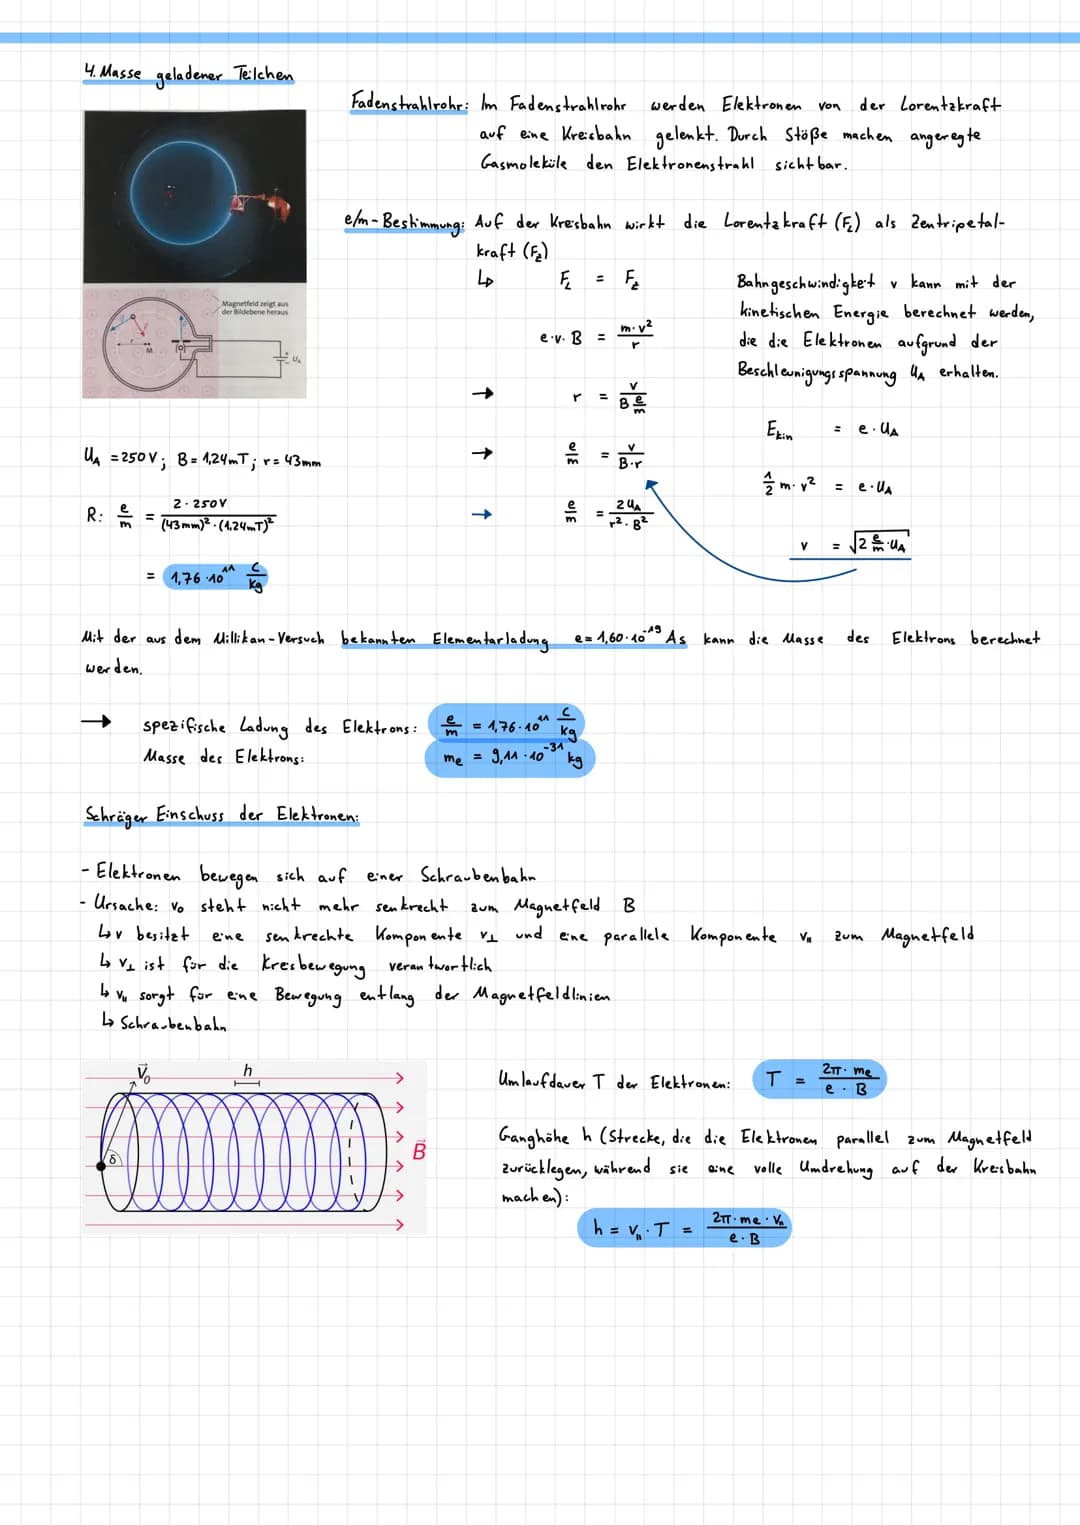 4. Masse geladener Teilchen
Fadenstrahlrohr: Im Fadenstrahlrohr werden Elektronen von der Lorentzkraft
auf eine Kreisbahn gelenkt. Durch Stöße machen angeregte
Gasmoleküle den Elektronenstrahl sichtbar.
e/m-Bestimmung: Auf der Kreisbahn wirkt die Lorentzkraft (F_L) als Zentripetal-
kraft (F_Z)
↳ F_L = F_Z
e·v·B = m·v²/r
→ r = v/(B e/m)
→ e/m = v/(B·r)
→ e/m = 2U_A/(r²·B²)
Bahngeschwindigkeit v kann mit der
kinetischen Energie berechnet werden,
die die Elektronen aufgrund der
Beschleunigungsspannung U_A erhalten.
E_kin = e·U_A
½ m·v² = e·U_A
v = √(2 e/m·U_A)
Magnetfeld zeigt aus
der Bildebene heraus
M
U_A
U_A = 250V; B = 1,24mT; r = 43mm
R: e/m = 2·250V/((43mm)²·(1,24mT)²)
= 1,76·10¹¹ C/kg
Mit der aus dem Millikan-Versuch bekannten Elementarladung e = 1,60·10⁻¹⁹ As kann die Masse des Elektrons berechnet
werden.
→ spezifische Ladung des Elektrons: e/m = 1,76·10¹¹ C/kg
Masse des Elektrons: me = 9,11·10⁻³¹ kg
Schräger Einschuss der Elektronen:
- Elektronen bewegen sich auf einer Schraubenbahn
- Ursache: v₀ steht nicht mehr senkrecht zum Magnetfeld B
↳ v besitzt eine senkrechte Komponente v⊥ und eine parallele Komponente v∥ zum Magnetfeld
↳ v⊥ ist für die Kreisbewegung verantwortlich
↳ v∥ sorgt für eine Bewegung entlang der Magnetfeldlinien
↳ Schraubenbahn
V⃗₀
h
δ
B⃗
Umlaufdauer T der Elektronen: T = 2π·me/(e·B)
Ganghöhe h (Strecke, die die Elektronen parallel zum Magnetfeld
zurücklegen, während sie eine volle Umdrehung auf der Kreisbahn
machen):
h = v∥·T = 2π·me·v∥/(e·B)